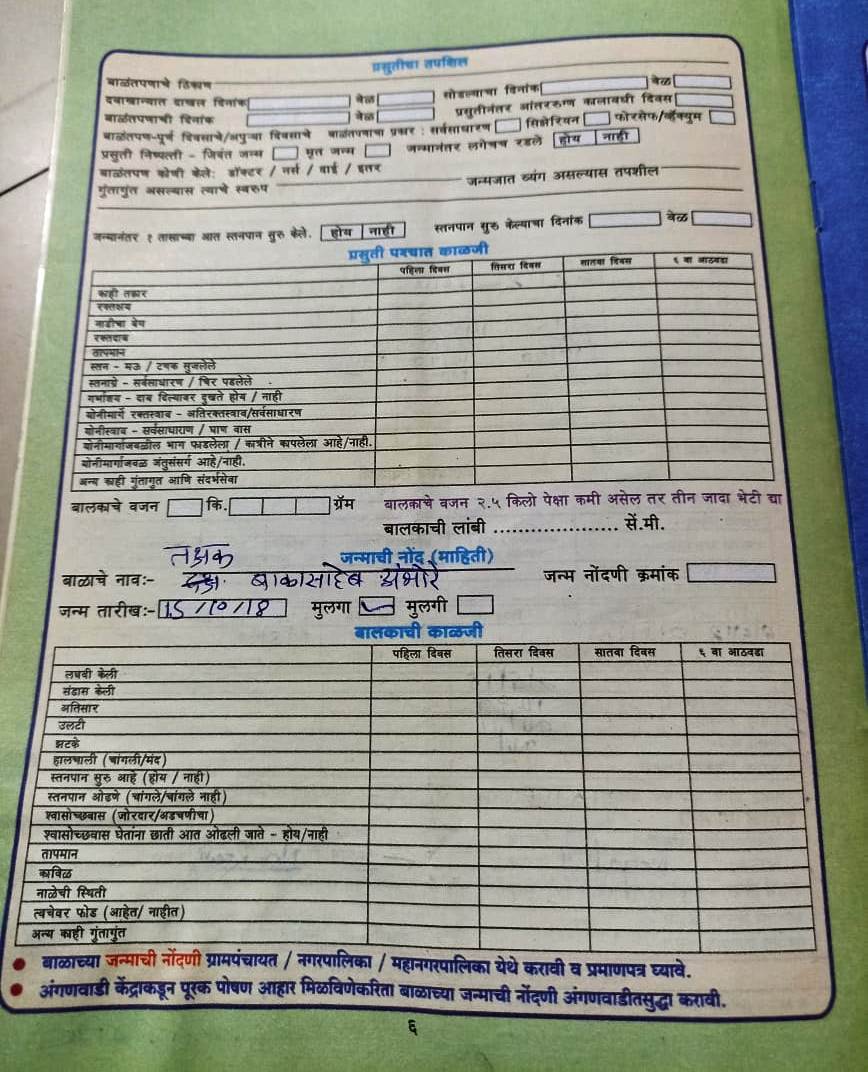 प्रसुतीचा तपशिल
बाळंतपणाचे ठिकाण
दवाखान्यात दाखल दिनांक वेळ सोडल्याचा दिनांक वेळ
बाळंतपणाची दिनांक वेळ प्रसुतीनंतर आंतररुग्ण कालावधी दिवस
बाळंतपण-पूर्ण दिवसाचे/अपुऱ्या दिवसाचे बाळंतपणाचा प्रकार : सर्वसाधारण सिझेरियन फोरसेफ/व्हॅक्युम
प्रसुती निष्पत्ती - जिवंत जन्म मृत जन्म जन्मानंतर लगेचच रडले होय नाही
बाळंतपण कोणी केले: डॉक्टर / नर्स / दाई / इतर
गुंतागुंत असल्यास त्याचे स्वरुप जन्मजात व्यंग असल्यास तपशील
जन्मानंतर १ तासाच्या आत स्तनपान सुरु केले. होय नाही स्तनपान सुरु केल्याचा दिनांक वेळ
प्रसुती पश्चात काळजी
पहिला दिवस तिसरा दिवस सातवा दिवस ६ वा आठवडा
काही तक्रार
रक्तक्षय
नाडीचा वेग
रक्तदाब
तापमान
स्तन - मऊ / टणक सुजलेले
स्तनाग्रे - सर्वसाधारण / चिर पडलेले
गर्भाशय - दाब दिल्यावर दुखते होय / नाही
योनीमार्गे रक्तस्त्राव - अतिरक्तस्त्राव/सर्वसाधारण
योनीस्त्राव - सर्वसाधाराण / घाण वास
योनीमार्गाजवळील भाग फाडलेला / कात्रीने कापलेला आहे/नाही.
योनीमार्गाजवळ जंतुसंसर्ग आहे/नाही.
अन्य काही गुंतागुत आणि संदर्भसेवा
बालकाचे वजन कि. ग्रॅम बालकाचे वजन २.५ किलो पेक्षा कमी असेल तर तीन जादा भेटी द्या
बालकाची लांबी ..................... सें.मी.
जन्माची नोंद (माहिती)
तक्षक
बाळाचे नावः- बाळासाहेब अंभोरे जन्म नोंदणी क्रमांक
जन्म तारीखः- 15/10/18 मुलगा मुलगी
बालकाची काळजी
पहिला दिवस तिसरा दिवस सातवा दिवस ६ वा आठवडा
लघवी केली
संडास केली
अतिसार
उलटी
झटके
हालचाली (चांगली/मंद)
स्तनपान सुरु आहे (होय / नाही)
स्तनपान ओढणे (चांगले/चांगले नाही)
श्वासोच्छवास (जोरदार/अडचणीचा)
श्वासोच्छवास घेतांना छाती आत ओढली जाते - होय/नाही
तापमान
काविळ
नाळेची स्थिती
त्वचेवर फोड (आहेत/ नाहीत)
अन्य काही गुंतागुंत
बाळाच्या जन्माची नोंदणी ग्रामपंचायत / नगरपालिका / महानगरपालिका येथे करावी व प्रमाणपत्र घ्यावे.
अंगणवाडी केंद्राकडून पूरक पोषण आहार मिळविणेकरिता बाळाच्या जन्माची नोंदणी अंगणवाडीतसुद्धा करावी.
६